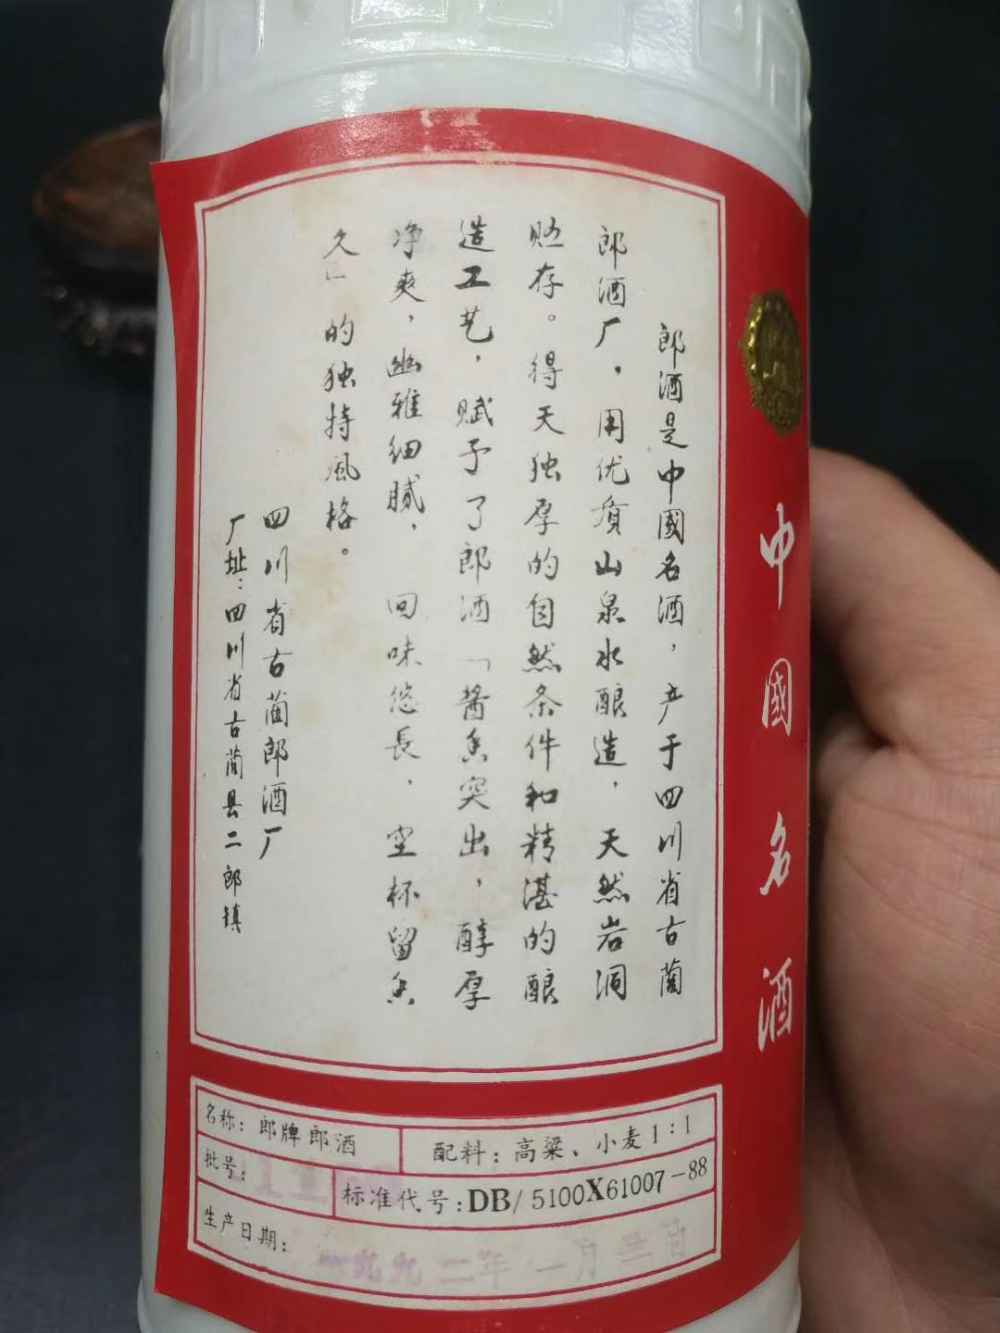 中國名酒
郎酒是中國名酒，产于四川省古蔺
郎酒厂，用优质山泉水酿造，天然岩洞
贮存。得天独厚的自然条件和精湛的酿
造工艺，赋予了郎酒「酱香突出，醇厚
净爽，幽雅细腻，回味悠長，空杯留香
久」的独持風格。
四川省古蔺郎酒厂
厂址：四川省古蔺县二郎镇
名称：郎牌郎酒
配料：高粱、小麦1:1
批号：
标准代号：DB/5100X61007-88
生产日期：一九九二年一月三日